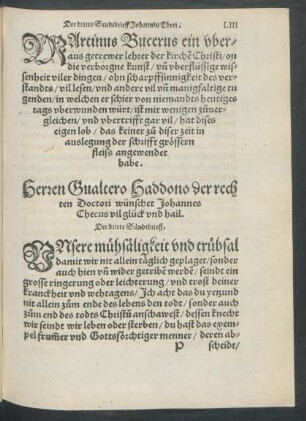 Der dritte Sendtbrieff Johannis Checi. LIII
MArtinus Bucerus ein vber-
aus getrewer lehrer der kirchē Christi, on
die verborgne kunst/ vñ vberflüssige wis-
senheit viler dingen/ ohn scharpffsinnigkeit des ver-
standts/ vil lesen/ vnd andere vil vñ manigfaltige tu
genden/ in welchen er schier von niemandts heutiges
tags vberwunden würt/ ist mit wenigen zůuer-
gleichen/ vnd vbertrifft gar vil/ hat dises
eigen lob/ das keiner zů diser zeit in
auslegung der schrifft grössern
fleiss angewendet
habe.
Herren Gualtero Haddono der rech
ten Doctori wünschet Johannes
Checus vil glück vnd hail.
Der dritte Sändtbrieff.
VNsere mühsäligkeit vnd trübsal
damit wir nit allein täglich geplaget/ sonder
auch hien vñ wider getribē werdē/ seindt ein
grosse ringerung oder leichterung/ vnd trost deiner
kranckheit vnd wehtagens/ Ich acht das du yetzund
nit allein zům ende des lebens den todt/ sonder auch
zům end des todts Christū anschawest/ dessen knecht
wir seindt wir leben oder sterben/ du hast das exem-
pel frum̃er vnd Gottsförchtiger menner/ deren ab-
P scheidt/